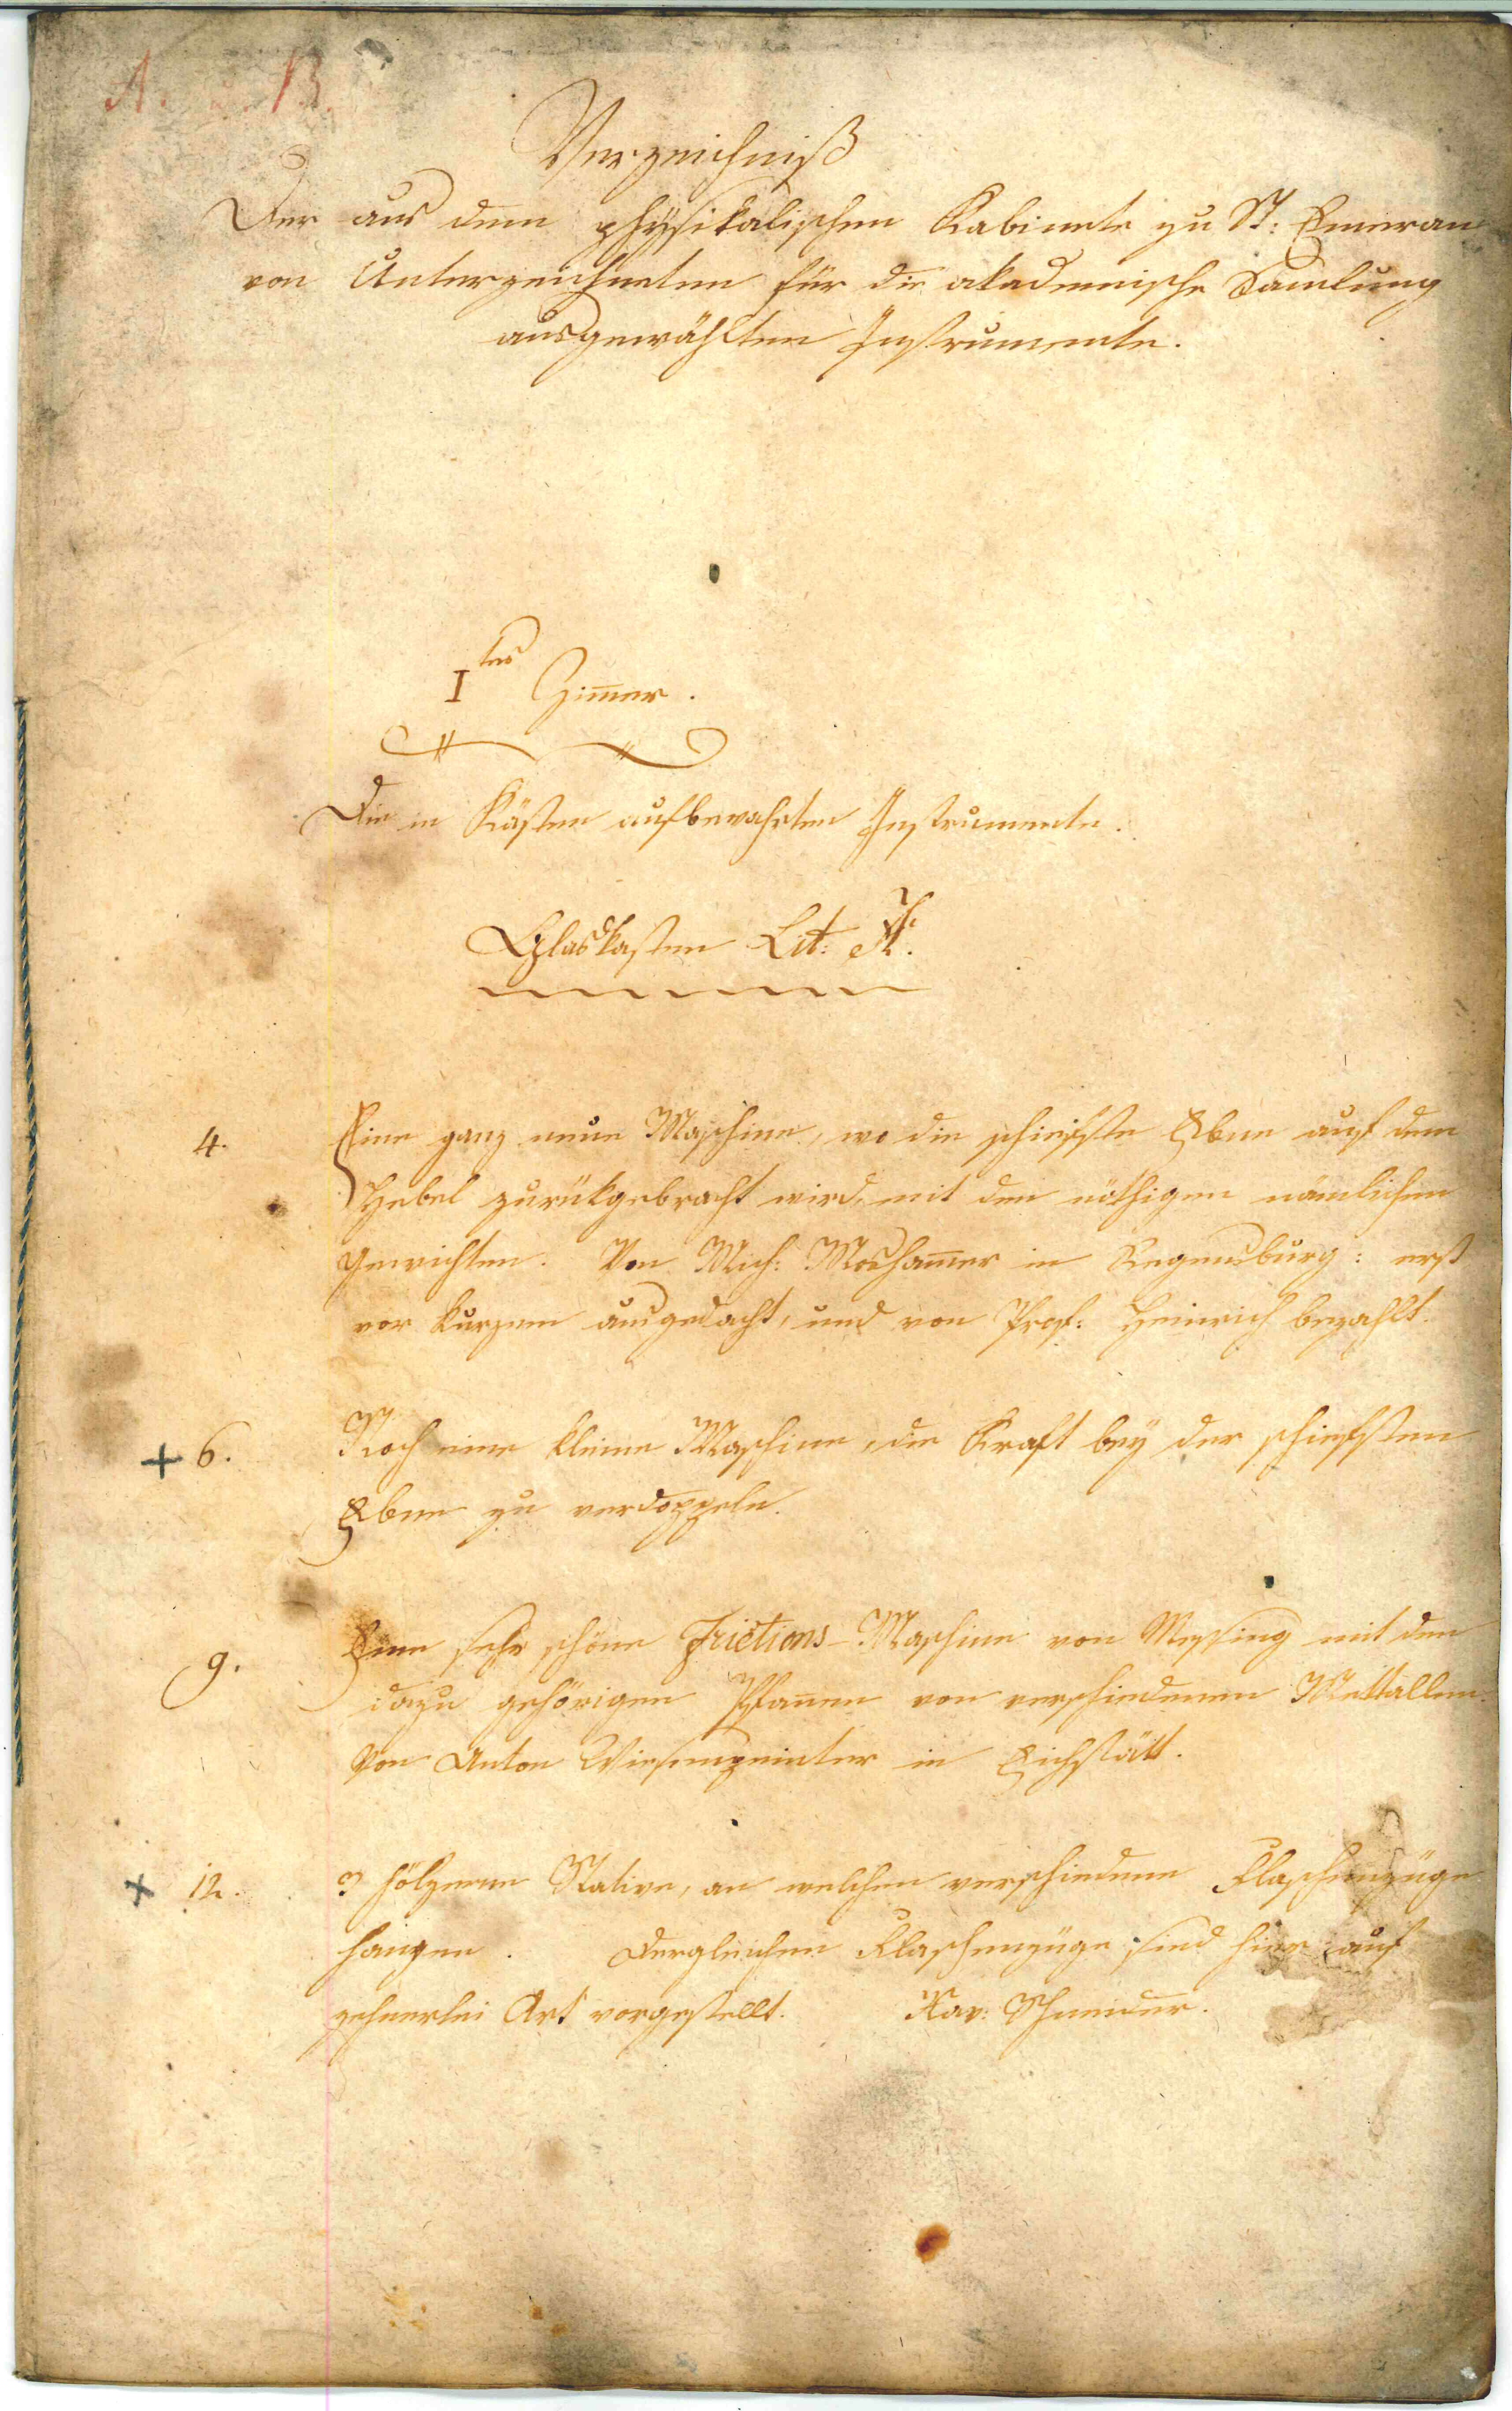 A. u. B.
Verzeichniß
Der aus dem physikalischen Kabinete zu St: Emeran
von Unterzeichneten für die akademische Samlung
ausgewählten Instrumente.
I tes Zim̄er.
Die in Kästen aufbewahrten Instrumente.
Glaskasten Lit: A.
4. Eine ganz neue Maschine, wo die schiefste Ebene auf dem
Hebel zurükgebracht wird, mit den nöthigen nämlichen
Gewichten. Von Mich: Mosham̄er in Regensburg: erst
vor kurzem ausgedacht, und von Prof: Heinrich bezahlt.
+ 6. Noch eine kleine Maschine, die Kraft bey der schiefsten
Ebene zu verdoppeln.
9. Eine sehr schöne Frictions-Maschine von Messing mit den
dazu gehörigen Pfan̄en von verschiedenen Mettallen.
Von Anton in Eichstätt.
+ 12. 3 hölzerne Stative, an welchen verschiedene Flaschenzüge
hangen. Dergleichen Flaschenzüge sind hier auf
zehnerlei Art vorgestellt. Xav: Schneider.